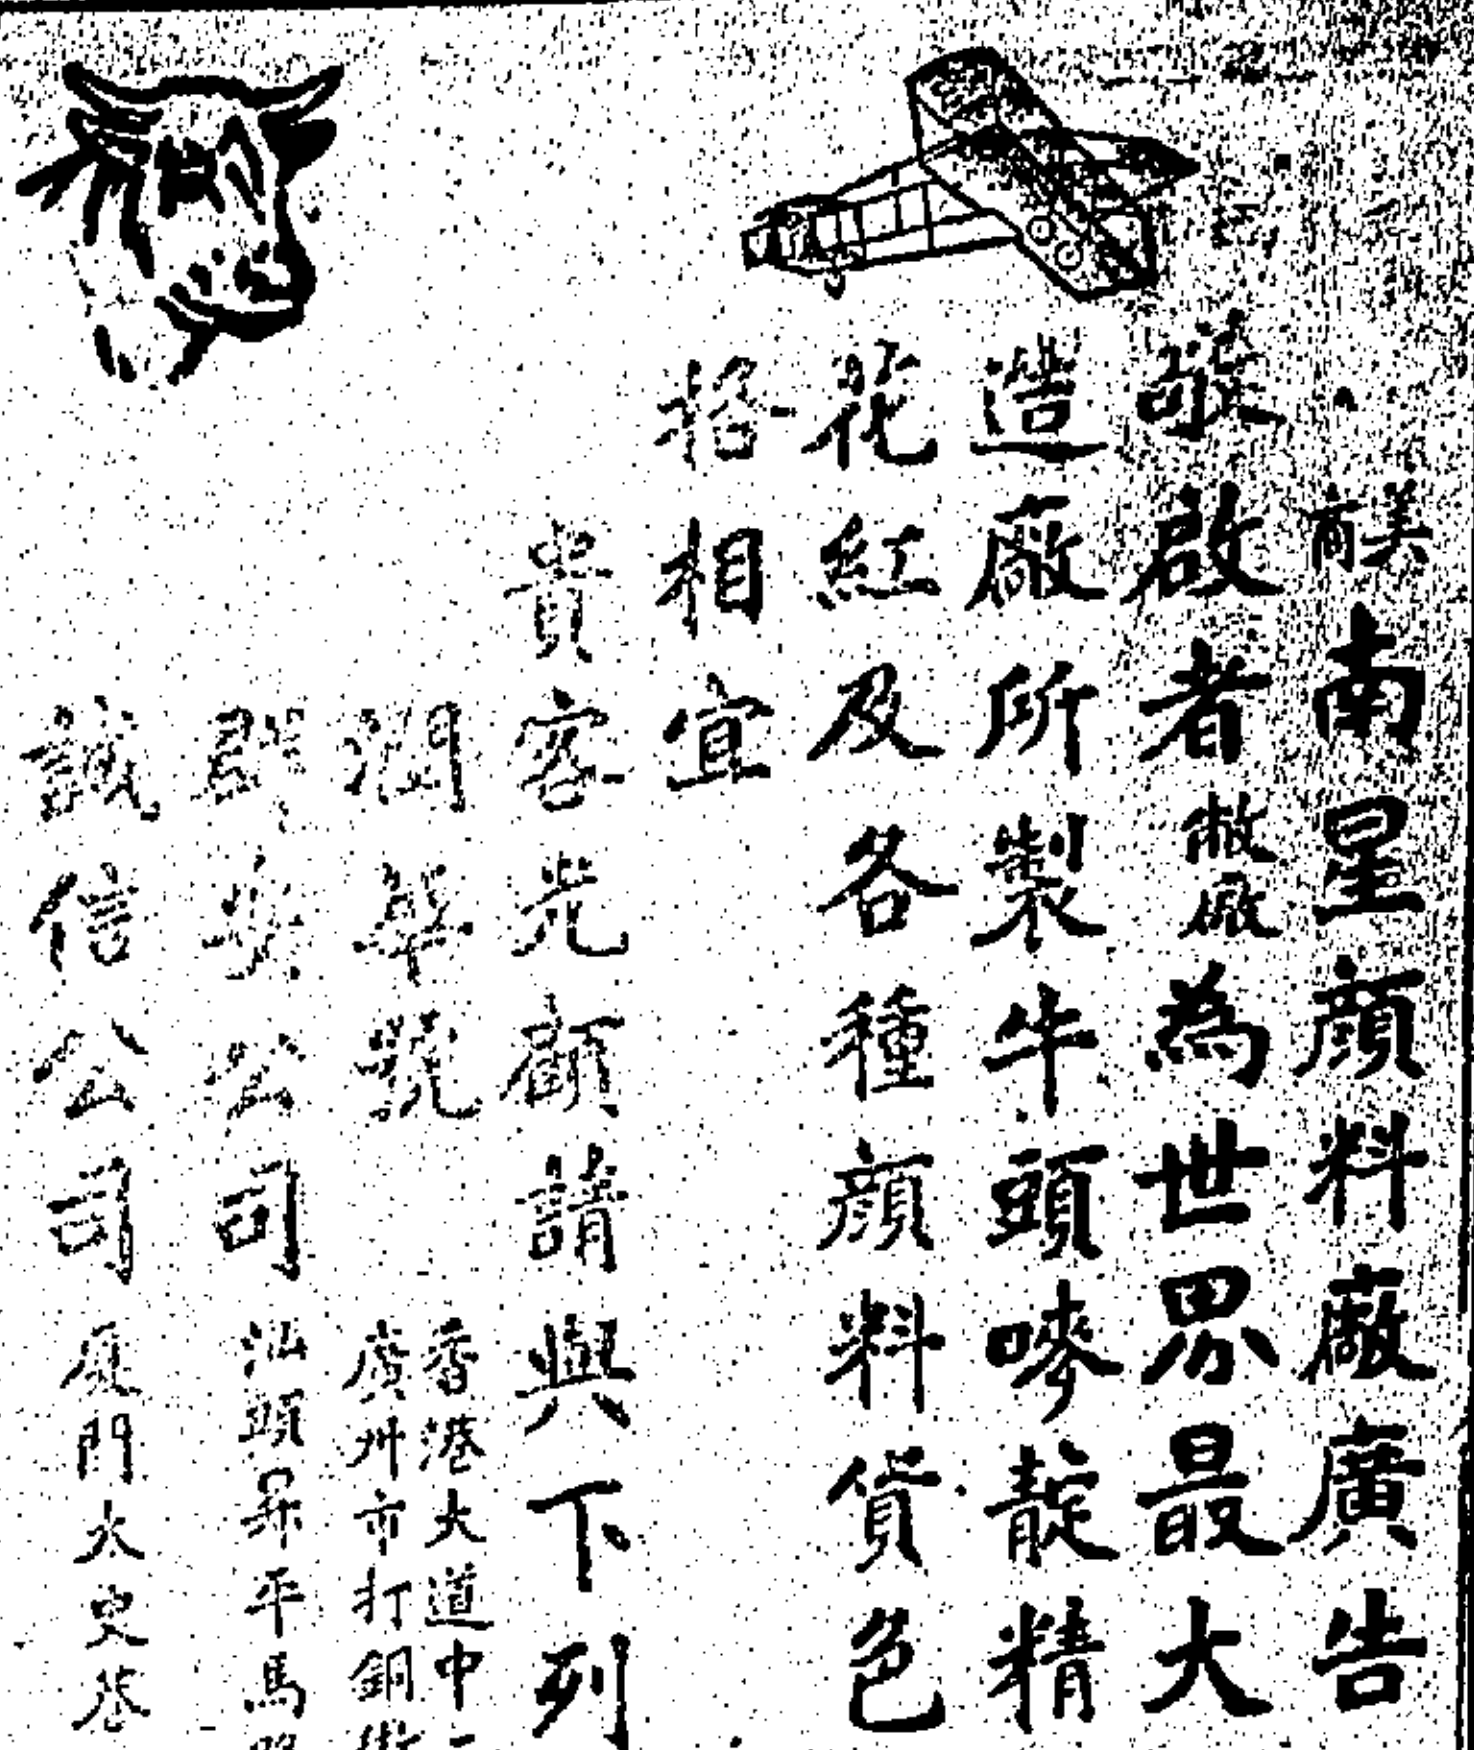 美商南星顏料廠廣告
敬啟者敝廠為世界最大
造廠所製牛頭嘜靛精
花紅及各種顏料貨色
格相宜
貴客光顧請與下列
潤華號
香港大道中
廣州市打銅街
公司
汕頭昇平馬路
誠信公司
厦門太史巷